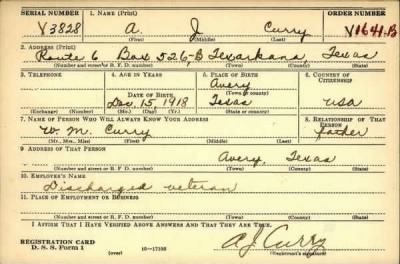 SERIAL NUMBER 1. NAME (Print) ORDER NUMBER
V3828 A. J Curry V1641-B
(First) (Middle) (Last)
2. ADDRESS (Print)
Route 6 Box 526-B Texarkana, Texas
(Number and street or R. F. D. number) (Town) (County) (State)
3. TELEPHONE 4. AGE IN YEARS 5. PLACE OF BIRTH 6. COUNTRY OF CITIZENSHIP
Avery
DATE OF BIRTH (Town or county)
Dec. 15, 1918 Texas USA
(Exchange) (Number) (Mo.) (Day) (Yr.) (State or country)
7. NAME OF PERSON WHO WILL ALWAYS KNOW YOUR ADDRESS 8. RELATIONSHIP OF THAT PERSON
W. M. Curry father
(Mr., Mrs., Miss) (First) (Middle) (Last)
9. ADDRESS OF THAT PERSON
Avery, Texas
(Number and street or R. F. D. number) (Town) (County) (State)
10. EMPLOYER'S NAME
Discharged veteran
11. PLACE OF EMPLOYMENT OR BUSINESS
(Number and street or R. F. D. number) (Town) (County) (State)
I AFFIRM THAT I HAVE VERIFIED ABOVE ANSWERS AND THAT THEY ARE TRUE.
REGISTRATION CARD
D. S. S. Form 1 (over) 16—17105 A J Curry
(Registrant's signature)